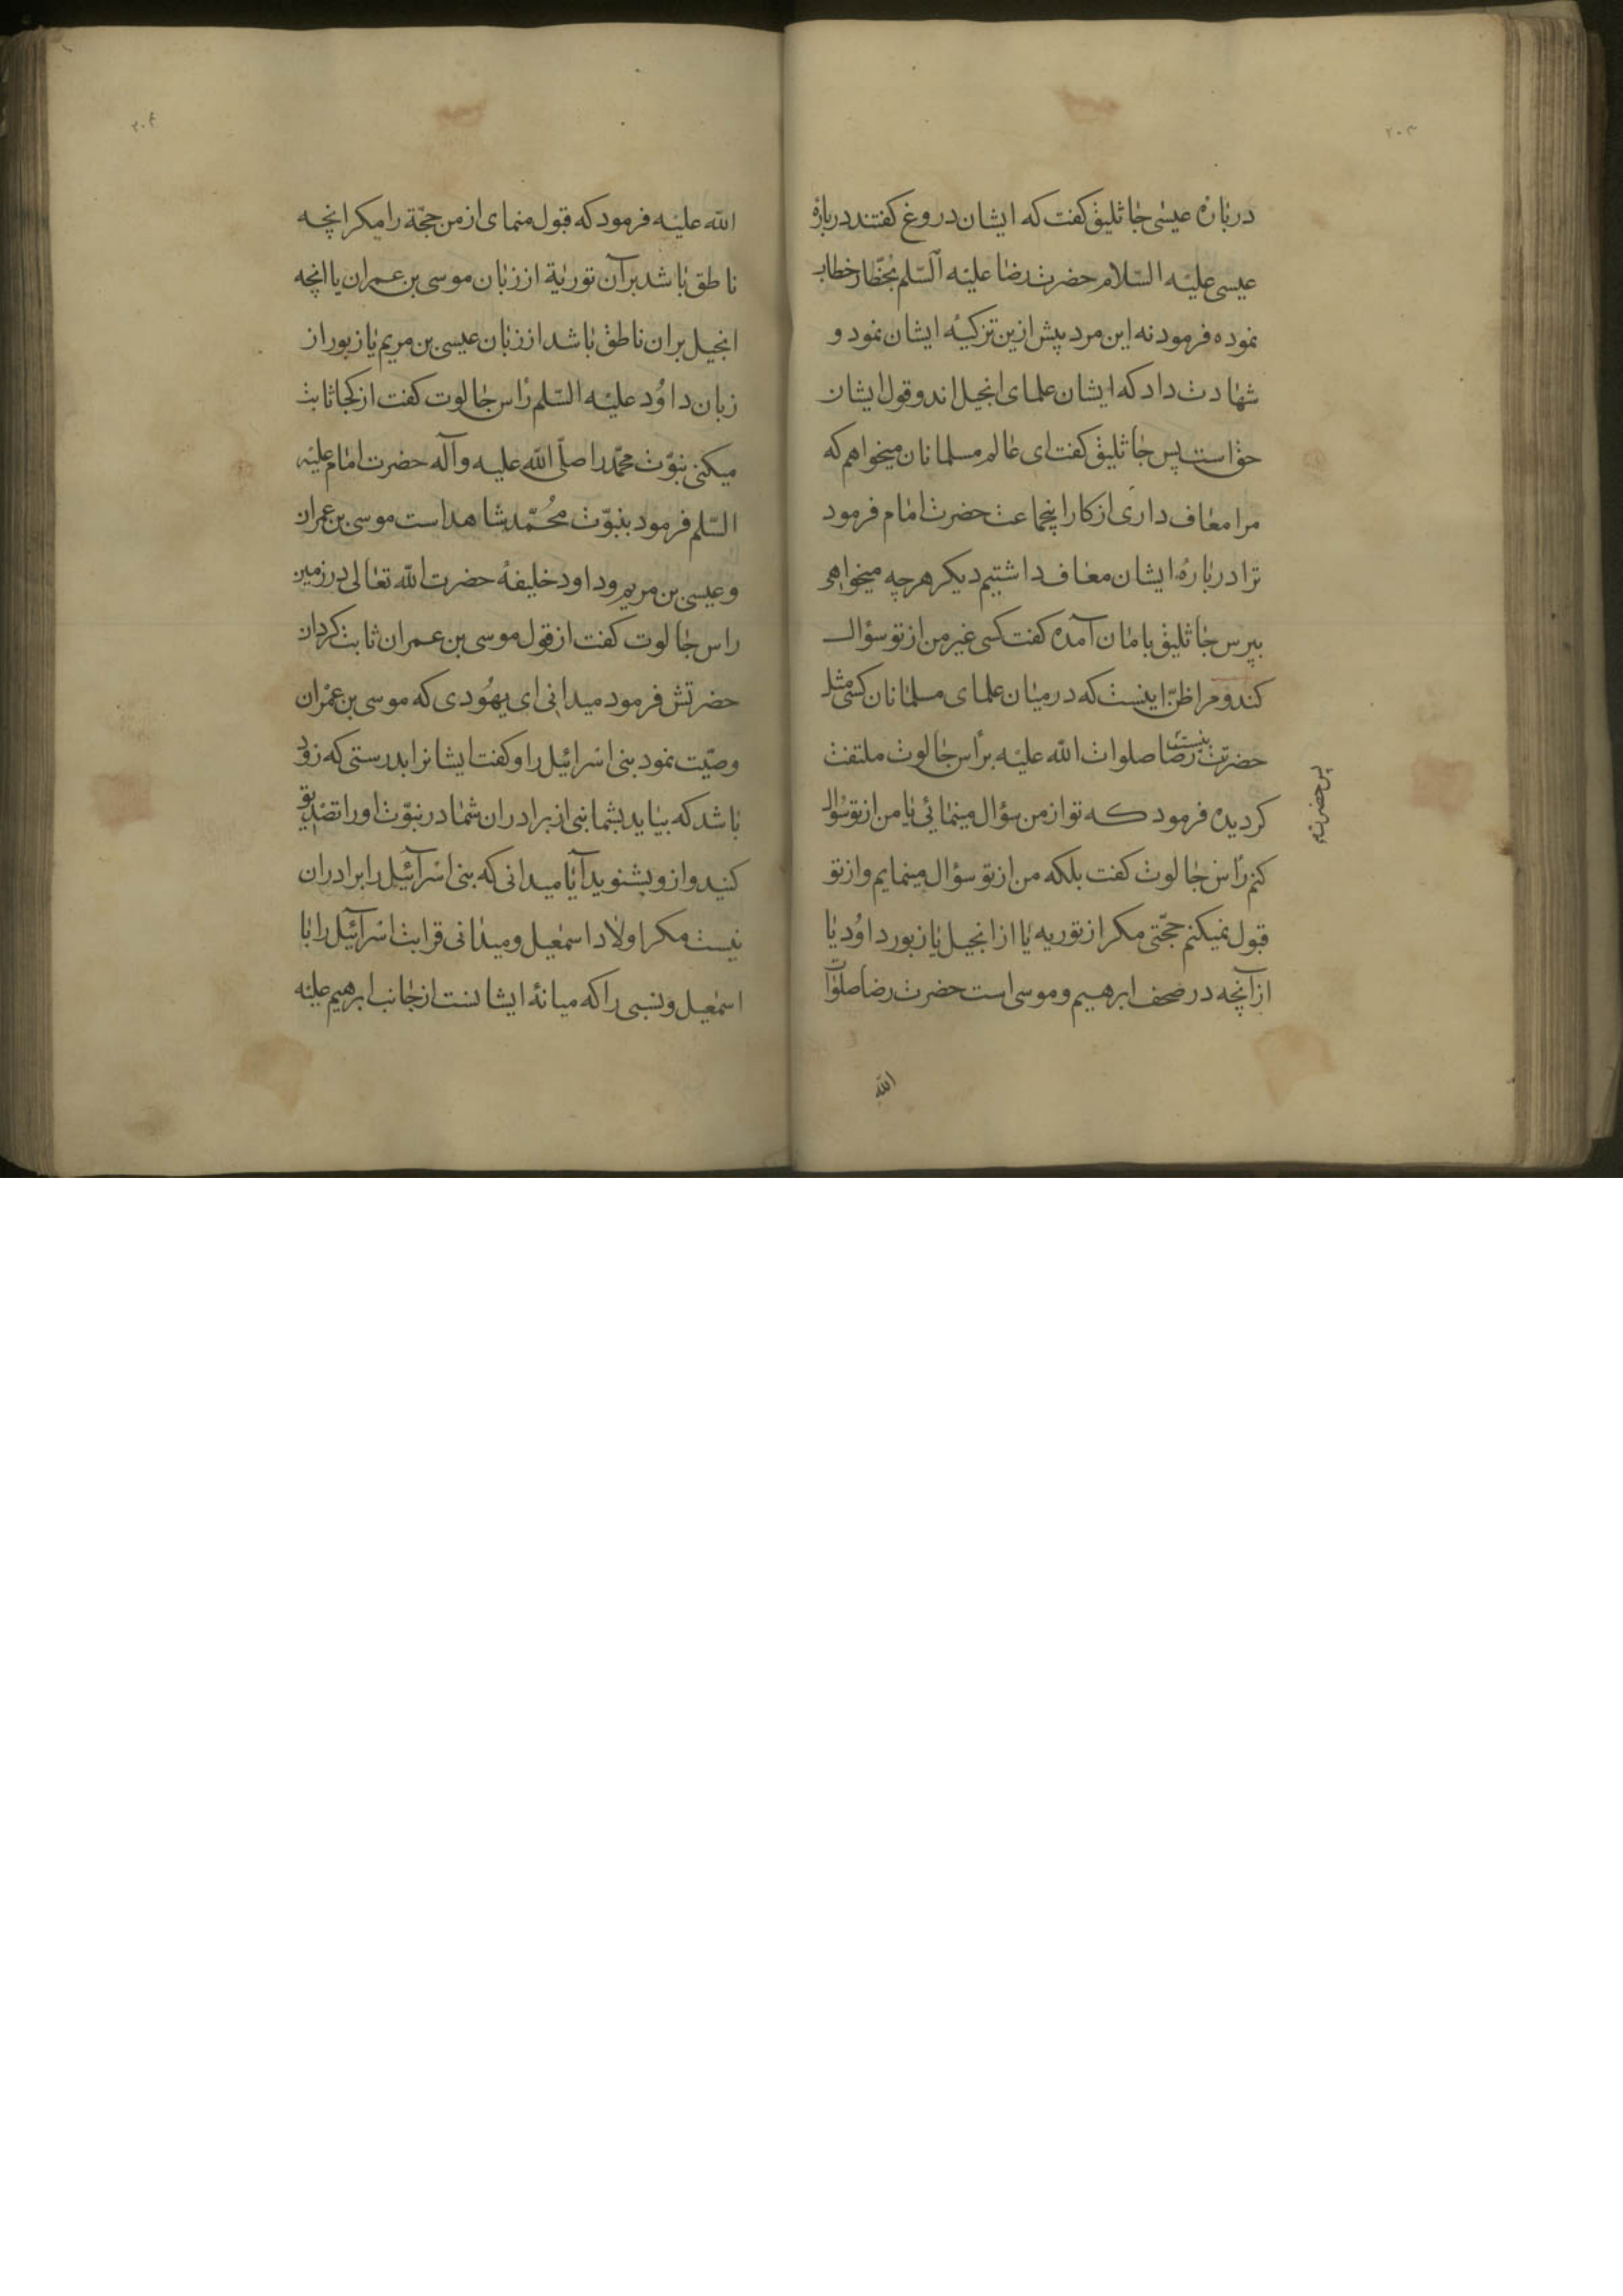 ۲۰۳
درباره عیسی جاثلیق کفت که ایشان دروغ کفتند درباره
عیسی علیه السلام حضرت رضا علیه السلم بحضار خطاب
نموده فرمود نه این مرد پیش ازین تزکیه ایشان نمود و
شهادت داد که ایشان علمای انجیل اند و قول ایشان
حق است پس جاثلیق کفت ای عالم مسلمانان میخواهم که
مرا معاف داری از کار اینجماعت حضرت امام فرمود
ترا درباره ایشان معاف داشتیم دیکر هرچه میخواهی
بپرس جاثلیق بامان آمده کفت کسی غیر من از تو سؤال
کند و مرا ظن اینست که در میان علمای مسلمانان کسی مثل
حضرتت نیست رضا صلوات الله علیه برأس جالوت ملتفت
پس حضرت
کردیده فرمود که تو از من سؤال مینمائی یا من از تو سؤال
کنم رأس جالوت کفت بلکه من از تو سؤال مینمایم و از تو
قبول نمیکنم حجتی مکر از توریه یا از انجیل یا زبور داود یا
از آنچه در صحف ابرهیم و موسی است حضرت رضا صلوات
الله
۲۰۴
الله علیه فرمود که قبول منمای از من حجة را مکر انچه
ناطق باشد برآن توریة از زبان موسی بن عمران یا انچه
انجیل بران ناطق باشد از زبان عیسی بن مریم یا زبور از
زبان داود علیه السلم رأس جالوت کفت از کجا ثابت
میکنی نبوت محمد را صلی الله علیه و آله حضرت امام علیه
السلم فرمود بنبوت محمد شاهد است موسی بن عمران
و عیسی بن مریم و داود خلیفه حضرت الله تعالی در زمین
راس جالوت کفت از قول موسی بن عمران ثابت کردان
حضرتش فرمود میدانی ای یهودی که موسی بن عمران
وصیت نمود بنی اسرائیل را و کفت ایشانرا بدرستی که زود
باشد که بیاید بشما نبی از برادران شما در نبوت او را تصدیق
کنید و ازو بشنوید آیا میدانی که بنی اسرآئیل را برادران
نیست مکر اولاد اسمعیل و میدانی قرابت اسرآئیل را با
اسمعیل و نسبی را که میانه ایشانست از جانب ابرهیم علیه